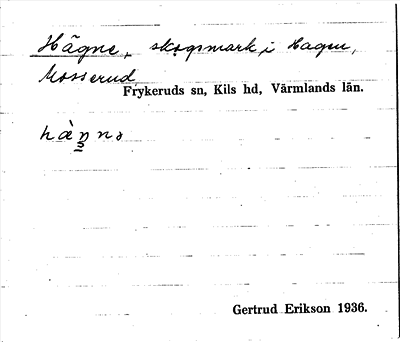 Hägne, skogsmark i Hagen,
Mosserud
Frykeruds sn, Kils hd, Värmlands län.
hὰŋnə
Gertrud Erikson 1936.